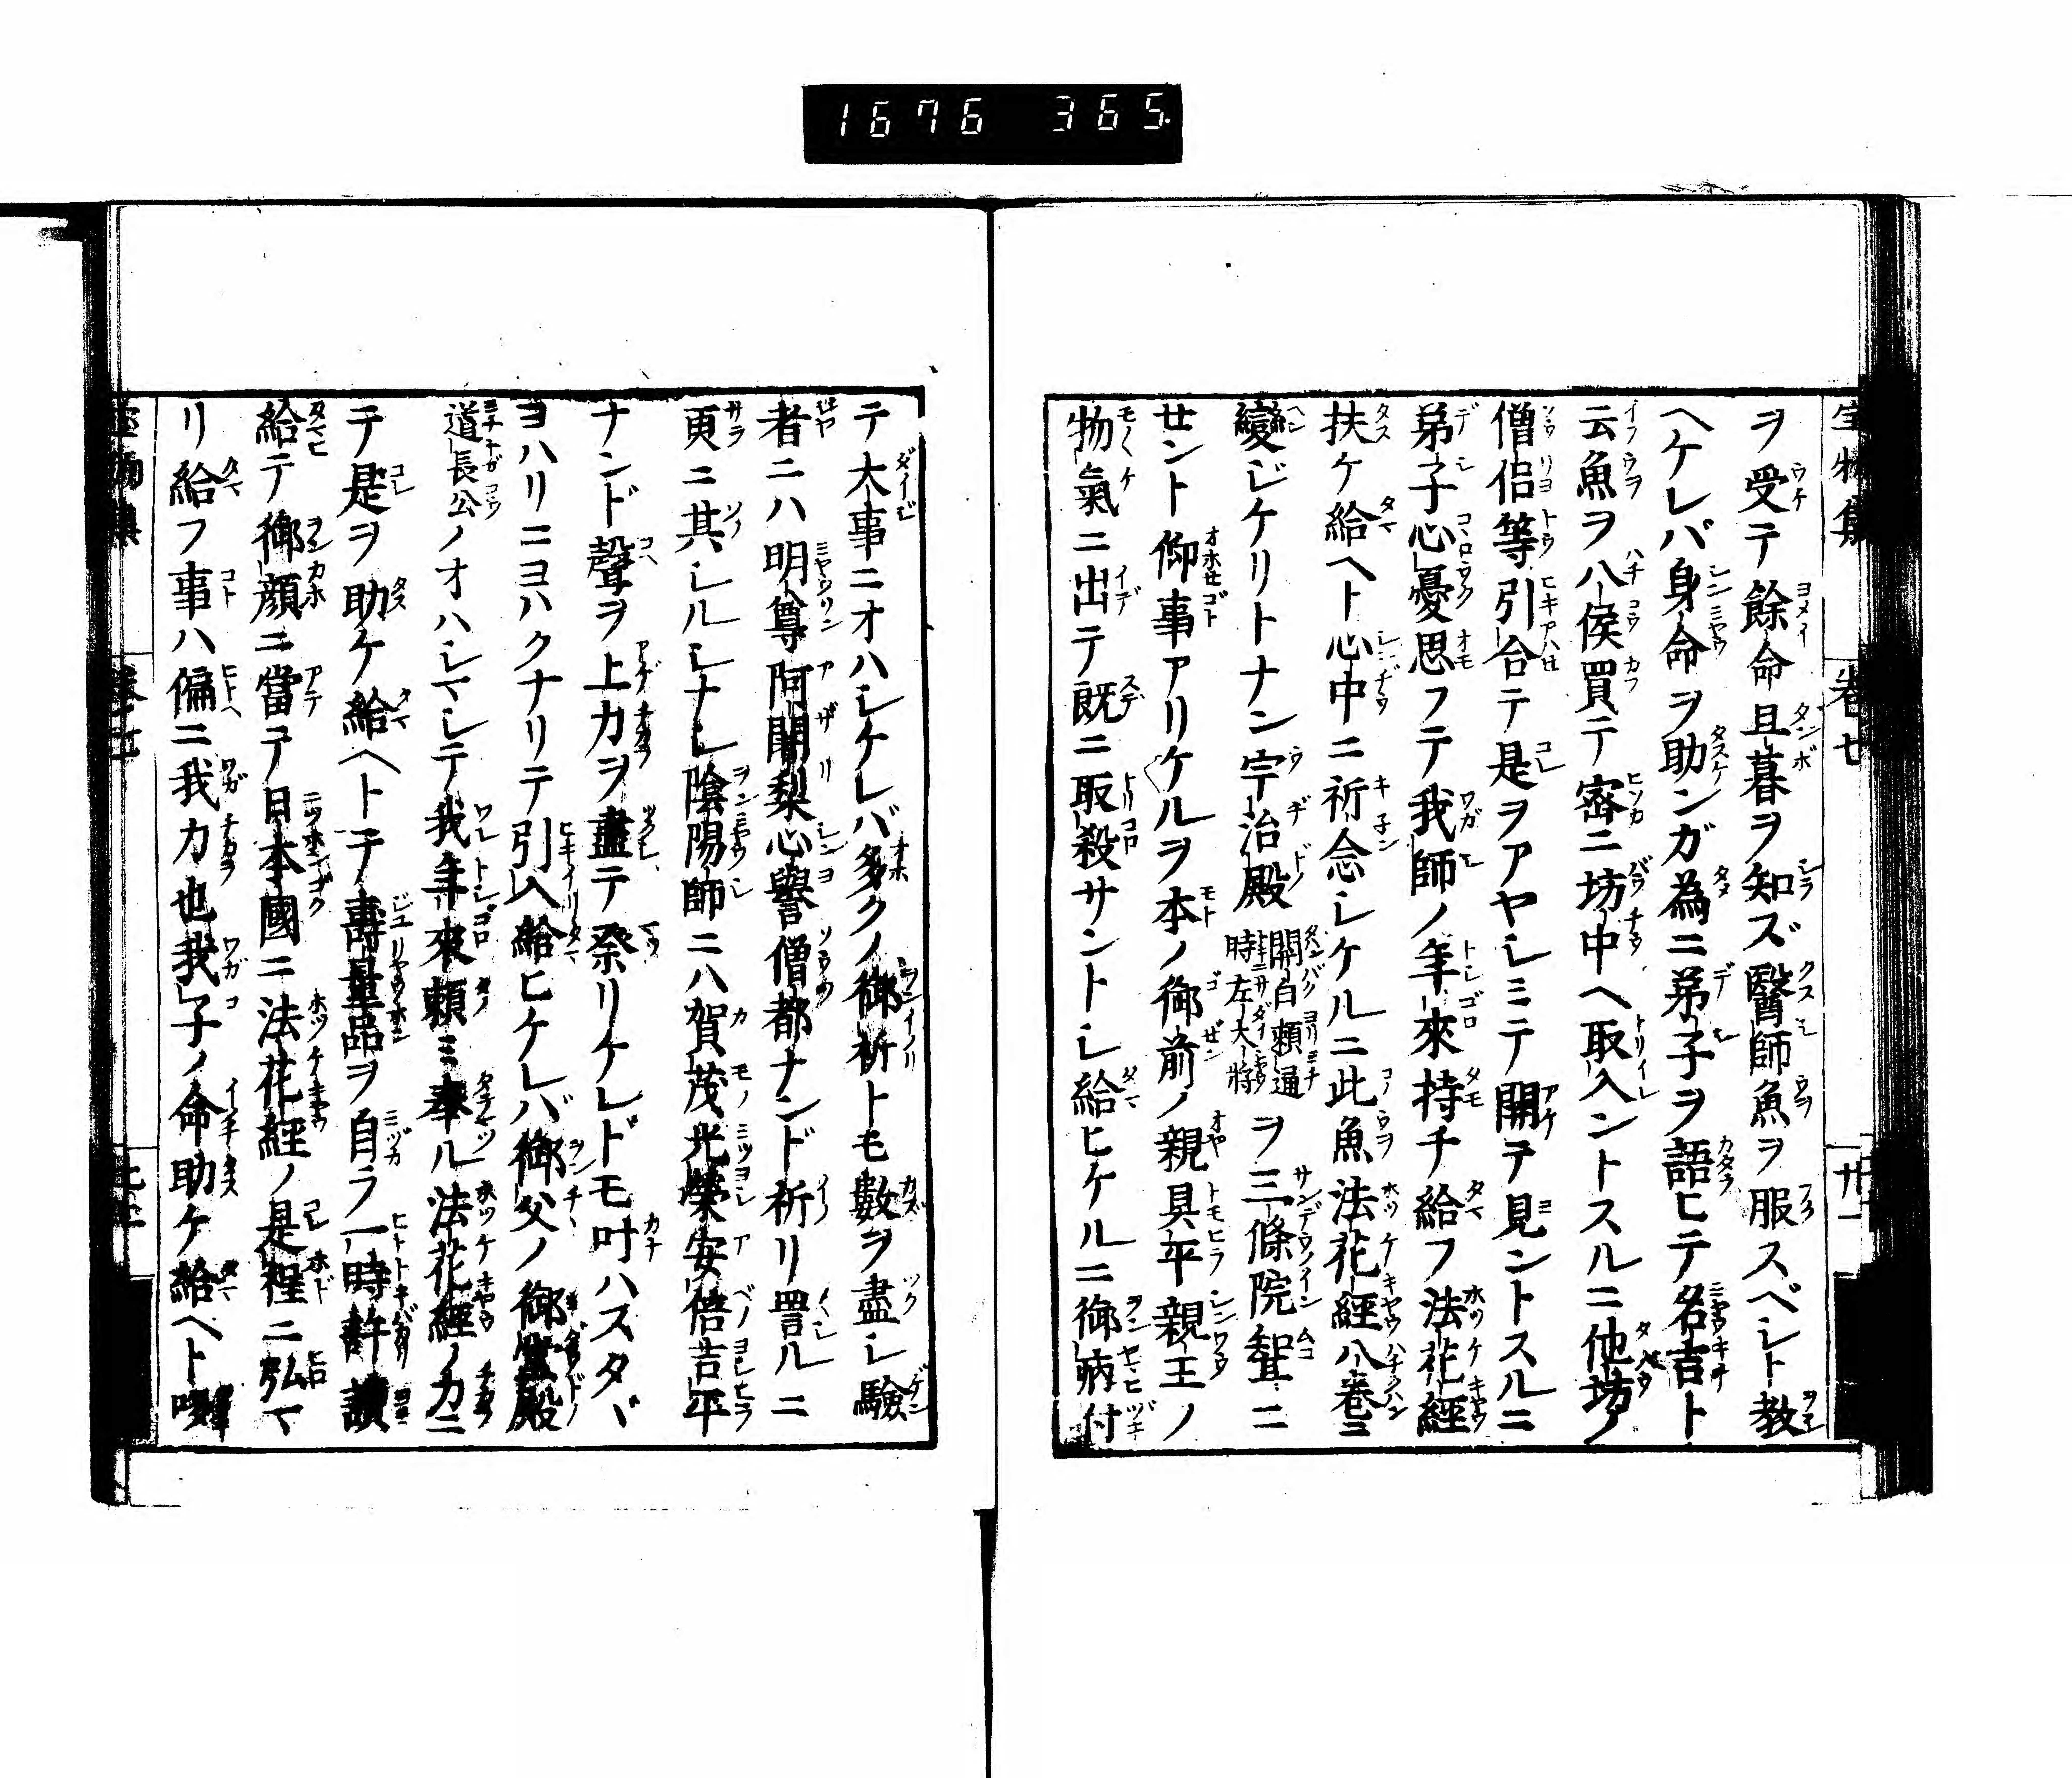 1676 365
ヲ受テ餘命旦暮ヲ知ズ醫師魚ヲ服スベシト教
ヘケレバ身命ヲ助ンガ為ニ弟子ヲ語ヒテ名吉ト
云魚ヲ八侯買テ密ニ坊中ヘ取入ントスルニ他坊ノ
僧侶等引合テ是ヲアヤシミテ開テ見ントスルニ
弟子心憂思フテ我師ノ年來持チ給フ法花經
扶ケ給ヘト心中ニ祈念シケルニ此魚法花經八巻ニ
變ジケリトナン宇治殿關白頼通時左大將ヲ三條院聟ニ
せント仰事アリケルヲ本ノ御前ノ親具平親王ノ
物氣ニ出テ既ニ取殺サントシ給ヒケルニ御病付
テ大事ニオハシケレバ多クノ御祈トモ數ヲ盡シ驗
者ニハ明尊阿闍梨心譽僧都ナンド祈リ詈ルニ
更ニ其シルシナシ陰陽師ニハ賀茂光榮安倍吉平
ナンド聲ヲ上力ヲ盡テ祭リケレドモ叶ハスタヾ
ヨハリニヨハクナリテ引入給ヒケレバ御父ノ御堂殿
道長公ノオハシマシテ我年來頼ミ奉ル法花經ノ力ニ
テ是ヲ助ケ給ヘトテ壽量品ヲ自ラ一時許讀
給テ御顔ニ當テ日本國ニ法花經ノ是程ニ弘マ
リ給フ事ハ偏ニ我力也我子ノ命助ケ給ヘト
宝物集 巻七 廿一